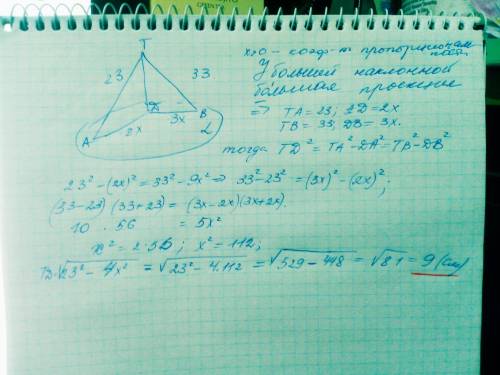 x>0 – коэф-т пропорционально-
сти.
У большей наклонной
большая проекция
T
23
33
D
B
3x
A
2x
α
⇒ TA = 23; AD = 2x
TB = 33; DB = 3x.
тогда TD² = TA² – DA² = TB² – DB²
23² – (2x)² = 33² – 9x² ⇒ 33² – 23² = (3x)² – (2x)²;
(33–23)(33+23) = (3x–2x)(3x+2x).
10 · 56 = 5x²
x² = 2·56; x² = 112;
TD = √23² – 4x² = √23² – 4·112 = √529 – 448 = √81 = 9 (см)